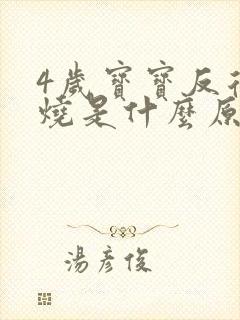 4歲寶寶反
燒是什麼原
湯彥俊